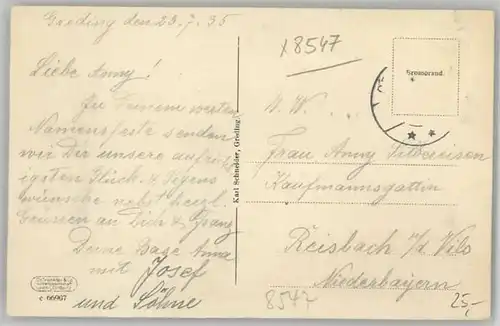 Greding den 23.7.35
Liebe Anny!
Zu Deinem werten
Namensfeste senden
wir Dir unsere aufrich-
igsten Glück- & Segens
wünsche nebst herzl.
Grüssen an Dich & Franz
Deine Base Anna
mit Josef
und Söhne
c 66967
Karl Schneider, Greding
x8547
Grenzrand.
Frau Anny
Kaufmannsgattin
Reisbach a/d Vils
Niederbayern
8547
25,-